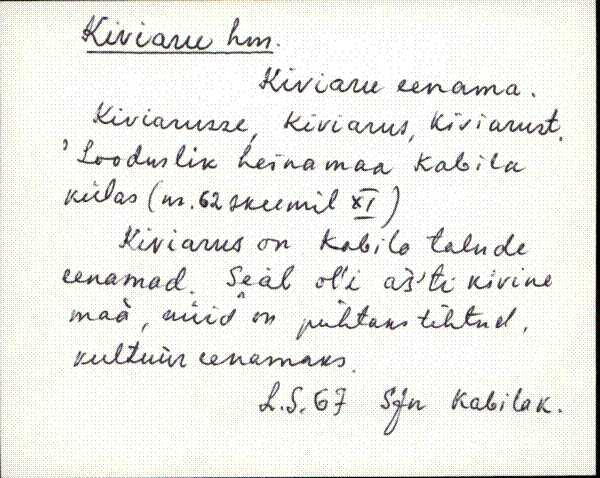 Kiviaru hm.
Kiviaru eenama.
Kiviarusse, Kiviarus, Kiviarust.
'Looduslik heinamaa Kabila
külas (nr. 62 skeemil XI)
Kiviarus on Kabila talude
eenamad. Seal ol'i as'ti kivine
maa, nüid on puhtaks tehtud,
kultuureenamaks.
L.S. 67 Sjn Kabilak.